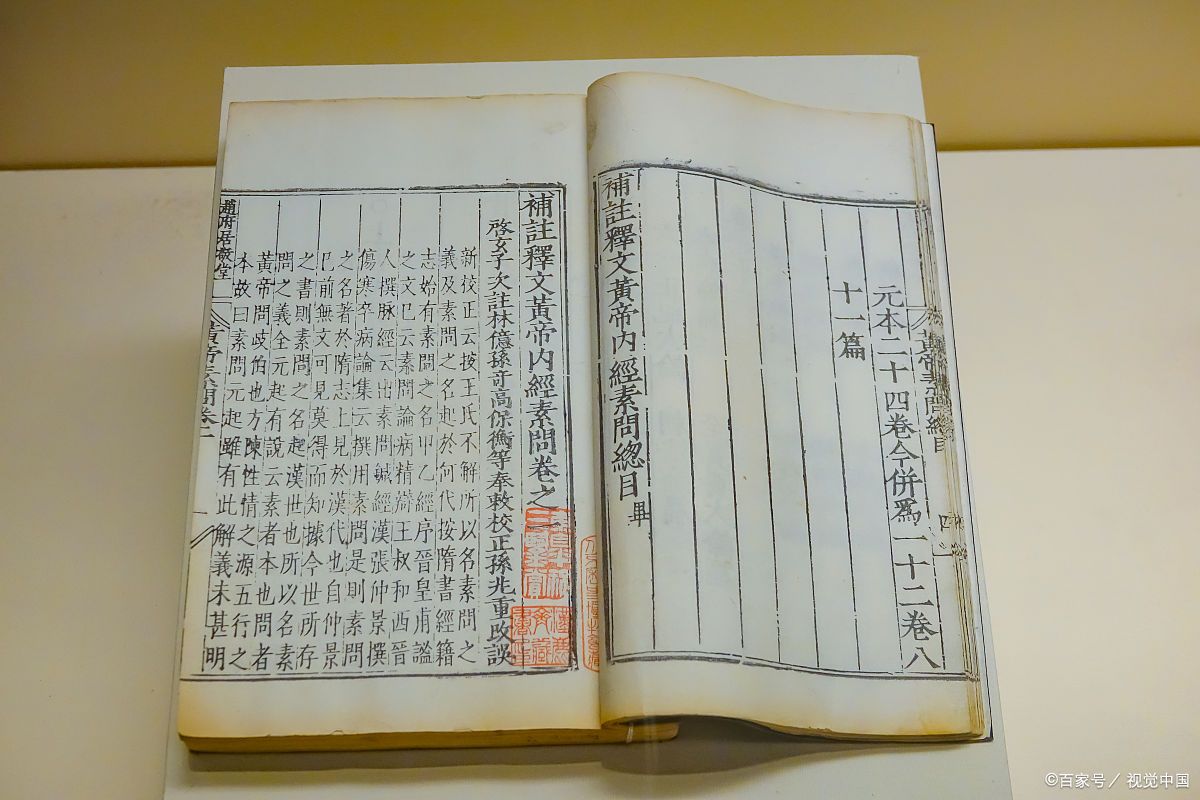 黃帝素問總目
元本二十四卷今併爲一十二卷八
十一篇
補註釋文黃帝內經素問總目畢
補註釋文黃帝內經素問卷之一
啓玄子次註林億孫奇高保衡等奉敕校正孫兆重改誤
新校正云按王氏不解所以名素問之
義及素問之名起於何代按隋書經籍
志始有素問之名甲乙經序晉皇甫謐
之文已云素問論病精辯王叔和西晉
人撰脉經云出素問鍼經漢張仲景撰
傷寒卒病論集云撰用素問是則素問
之名著於隋志上見於漢代也自仲景
已前無文可見莫得而知據今世所存
之書則素問之名起漢世也所以名素
問之義全元起有說云素者本也問者
黃帝問歧伯也方陳性情之源五行之
本故曰素問元起雖有此解義未甚明
趙府居敬堂
黃帝素問卷一
©百家号／视觉中国